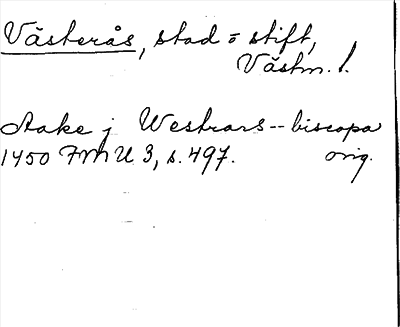 Västerås, stad o stift,
Västm. l.
Aake j Westrars -- biscopa
1450 FMU 3, s. 497. orig.